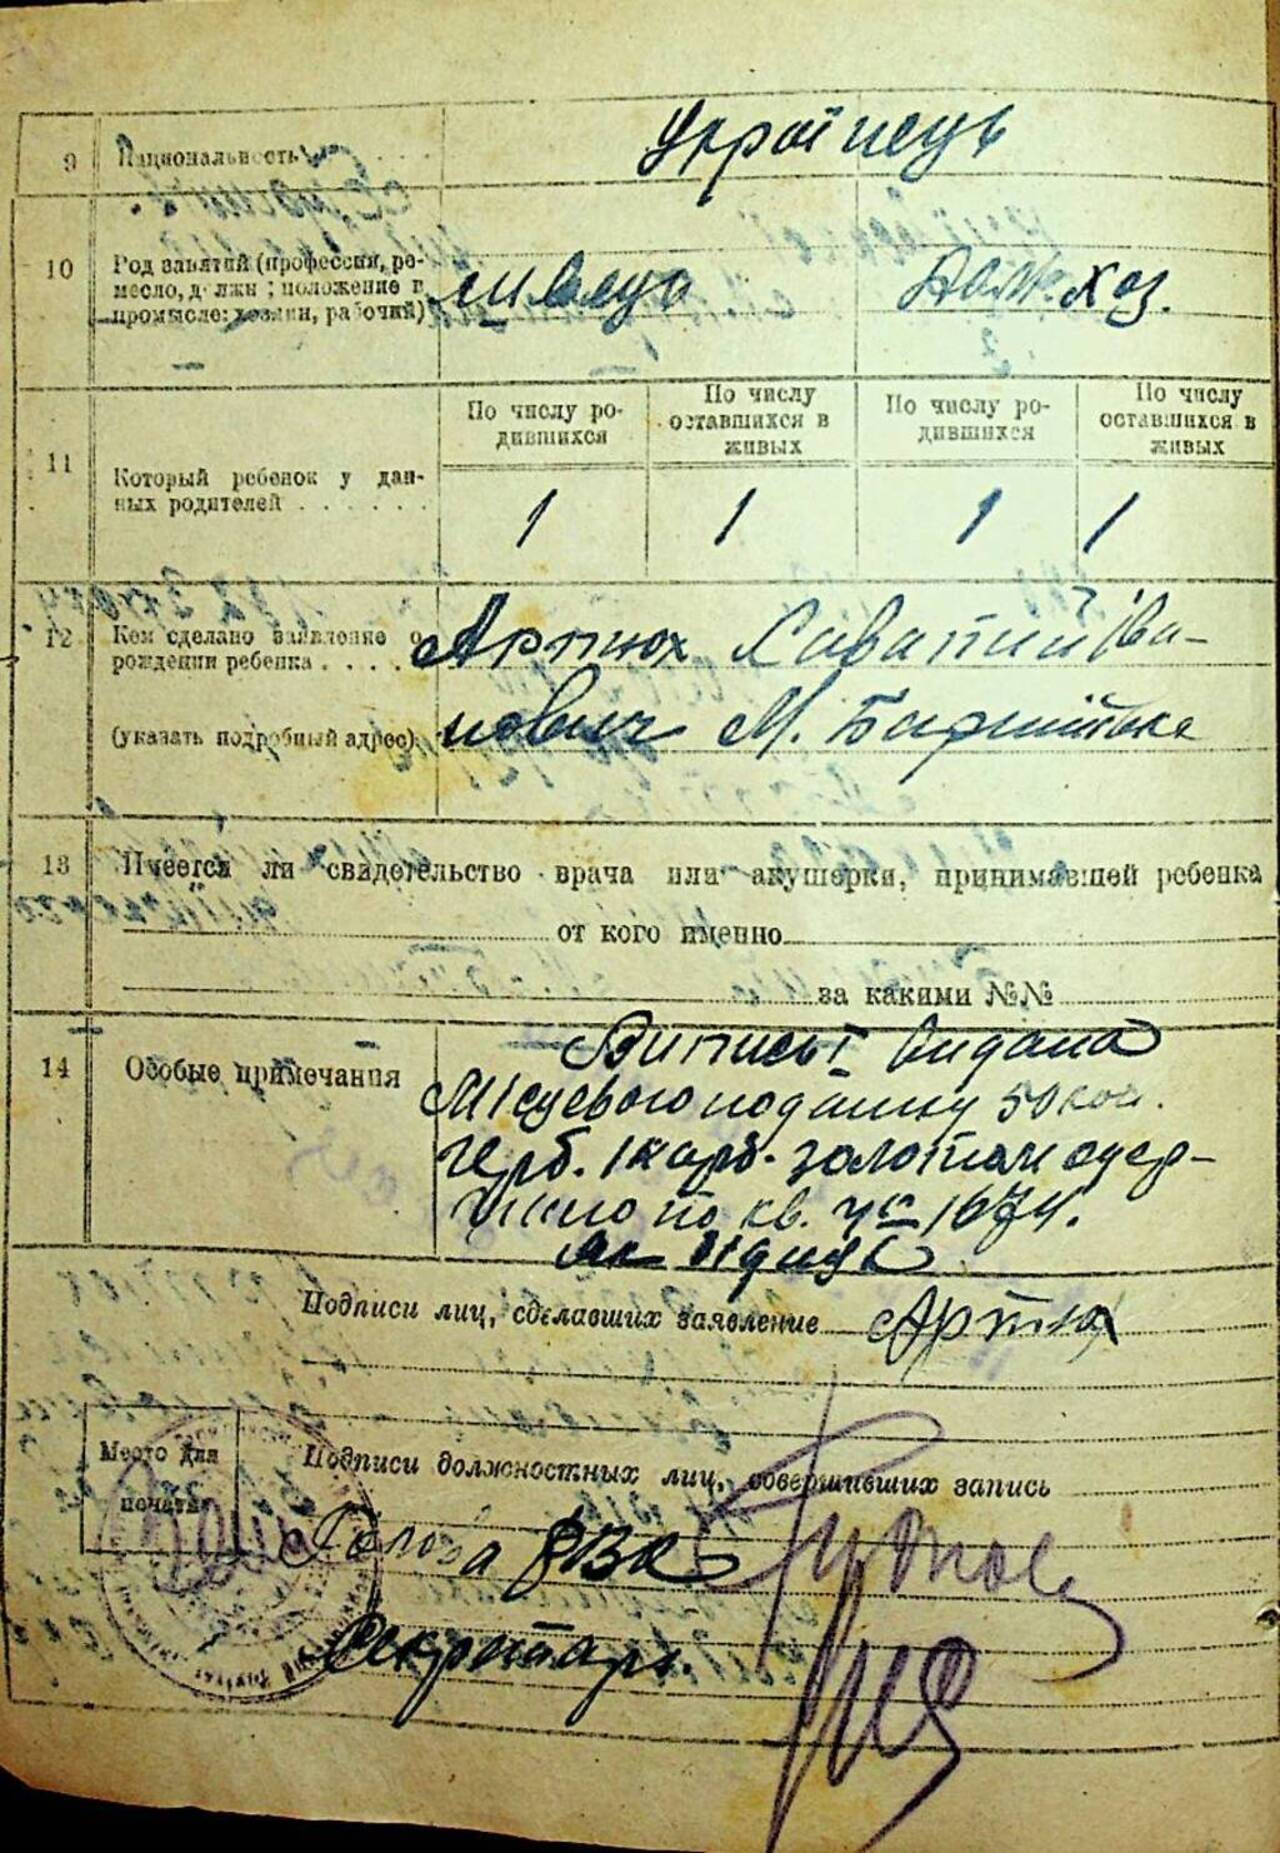 9 Национальность Українець
10 Род занятий (профессия, ре-
месло, должн ; положение в
промысле: хозяин, рабочий) швець Дом. хоз.
11 Который ребенок у дан-
ных родителей . . . . . .
По числу ро-
дившихся
По числу
оставшихся в
живых
По числу ро-
дившихся
По числу
оставшихся в
живых
1 1 1 1
12 Кем сделано заявление о
рождении ребенка . . . .
(указать подробный адрес).
Артюх Саватий Іва-
нович М. Баришівка
13 Имеется ли свидетельство врача или акушерки, принимавшей ребенка
от кого именно
за какими №№
14 Особые примечания
Випись видана
Місцевого податку 50 коп.
герб. 1 карб. золотом одер-
жано по кв. 1674.
Подписи лиц, сделавших заявление Артюх
Место для
печати
Подписи должностных лиц, совершивших запись
Голова РВК
Секретарь.